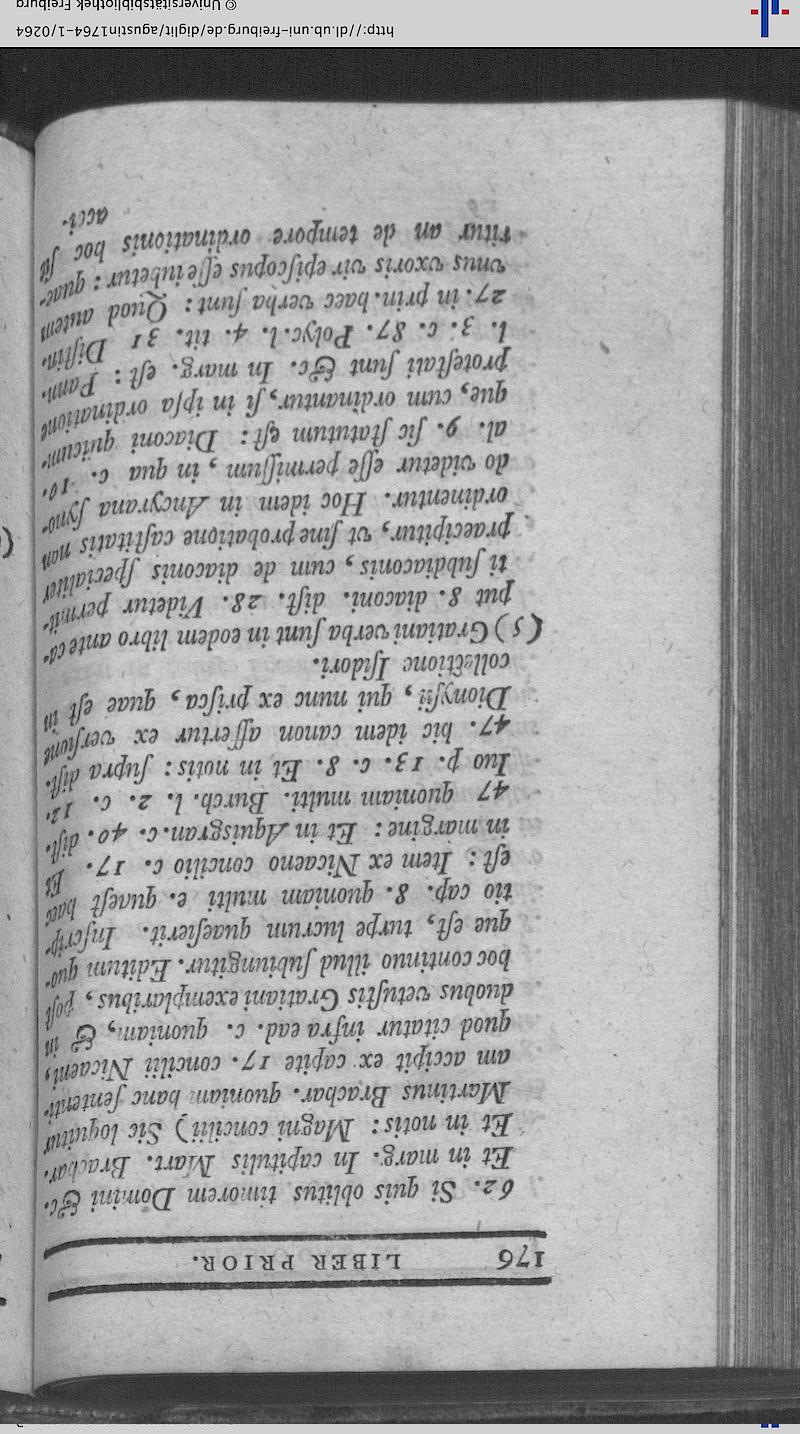 176 LIBER PRIOR.
62. Si quis oblitus timorem Domini &c.
Et in marg. In capitulis Mart. Bracbar.
Et in notis: Magni concilii) Sic loquitur
Martinus Bracbar. quoniam hanc sententi-
am accipit ex capite 17. concilii Nicaeni,
quod citatur infra ead. c. quoniam, & in
duobus vetustis Gratiani exemplaribus, post
hoc continuo illud subiungitur. Editum quo-
que est, turpe lucrum quaesierit. Inscrip-
tio cap. 8. quoniam multi e. quaest haec
est: Item ex Nicaeno concilio c. 17. Et
in margine: Et in Aquisgran. c. 40. dist.
47 quoniam multi. Burch. l. 2. c. 12.
Iuo p. 13. c. 8. Et in notis: supra dist.
47. hic idem canon affertur ex versione
Dionysii, qui nunc ex prisca, quae est in
collectione Isidori.
(5) Gratiani verba sunt in eodem libro ante ca-
put 8. diaconi. dist. 28. Videtur permit-
ti subdiaconis, cum de diaconis specialiter
praecipitur, vt sine probatione castitatis non
ordinentur. Hoc idem in Ancyrana syno-
do videtur esse permissum, in qua c. 10.
al. 9. sic statutum est: Diaconi quicum-
que, cum ordinantur, si in ipsa ordinatione
protestati sunt &c. In marg. est: Pann.
l. 3. c. 87. Polyc. l. 4. tit. 31 Distin.
27. in prin. haec verba sunt: Quod autem
vnus vxoris vir episcopus esse iubetur: quae-
ritur an de tempore ordinationis hoc sit
acci-
http://dl.ub.uni-freiburg.de/diglit/agustin1764-1/0264
© Universitätsbibliothek Freiburg